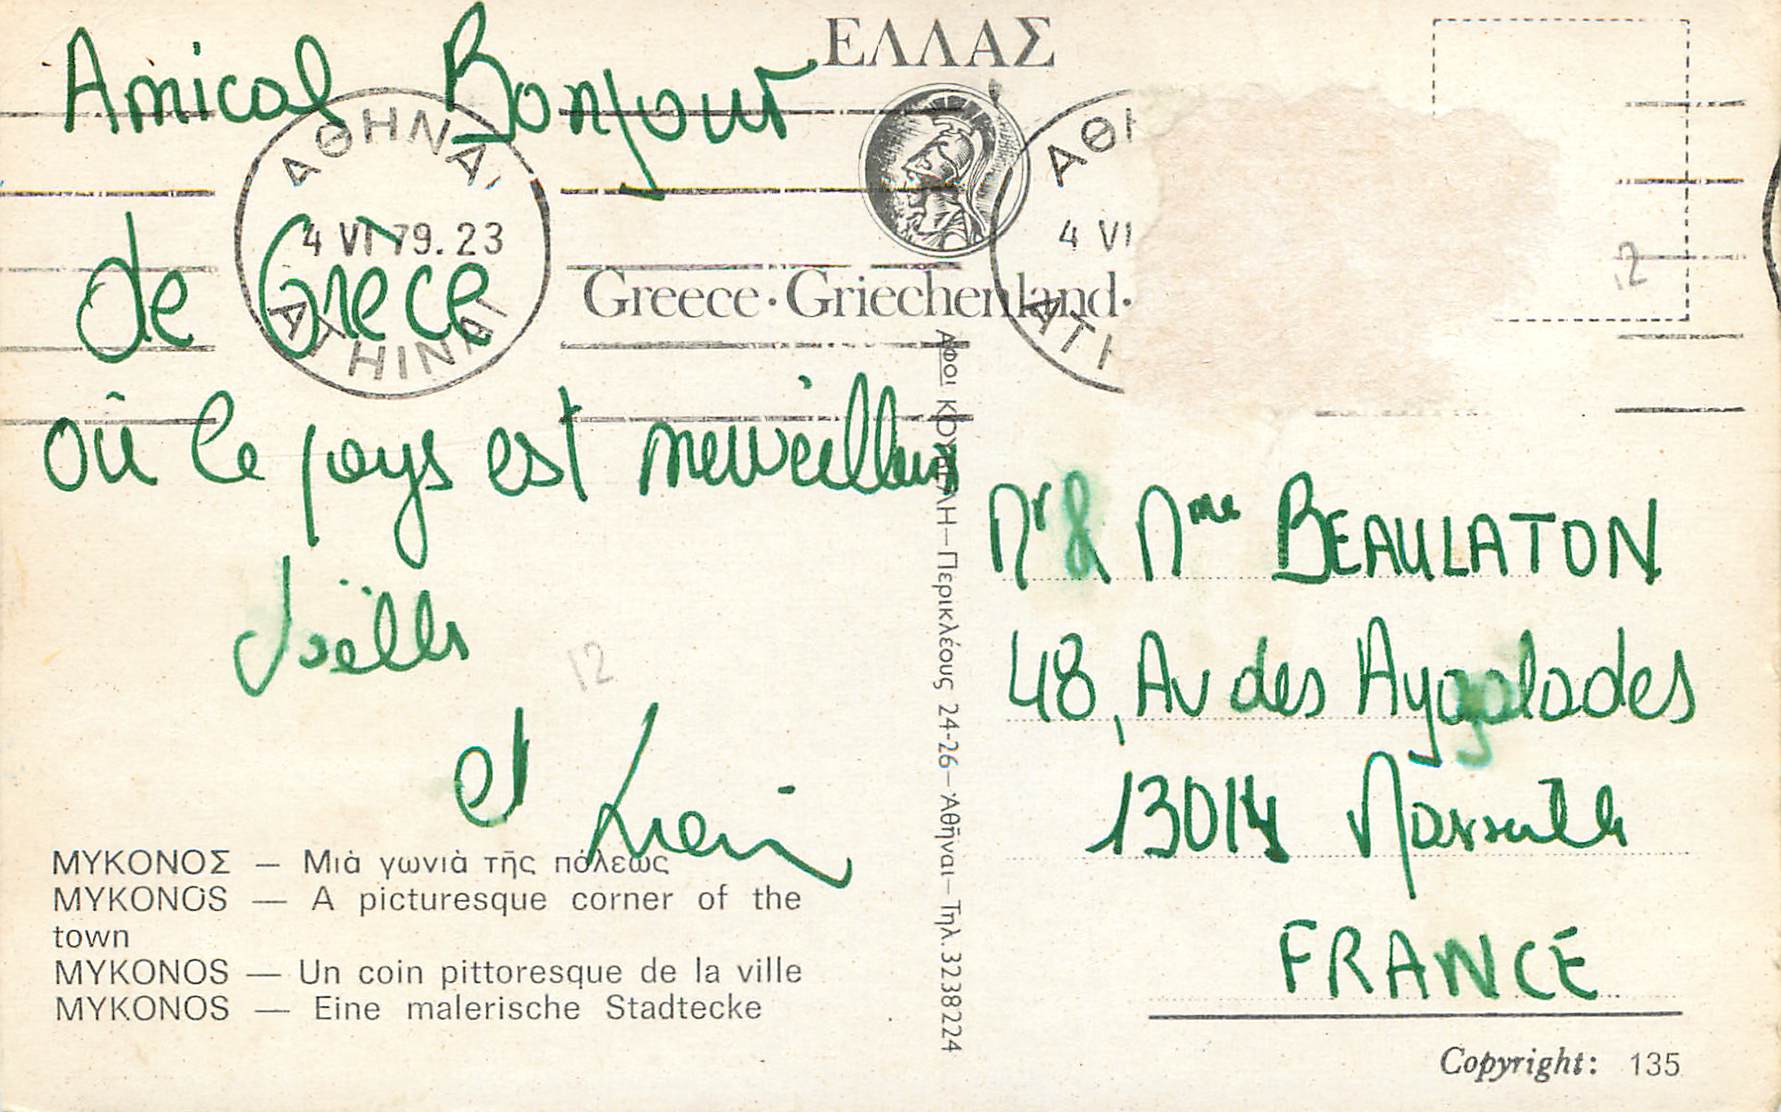 Amical Bonjour
de Grèce
où le pays est merveilleux
Joëlle
et
ΕΛΛΑΣ
Greece · Griechenland ·
ΑΘΗΝΑΙ
4 VI 79.23
ATHINAI
ΑΘΗ
4 VI
ATH
12
ΑΦΟΙ — Περικλέους 24-26 — Ἀθῆναι — Τηλ. 3238224
Mr & Mme BEAULATON
48, Av des Aygalades
13014 Marseille
FRANCE
12
ΜΥΚΟΝΟΣ — Μιὰ γωνιὰ τῆς πόλεως
MYKONOS — A picturesque corner of the
town
MYKONOS — Un coin pittoresque de la ville
MYKONOS — Eine malerische Stadtecke
Copyright: 135